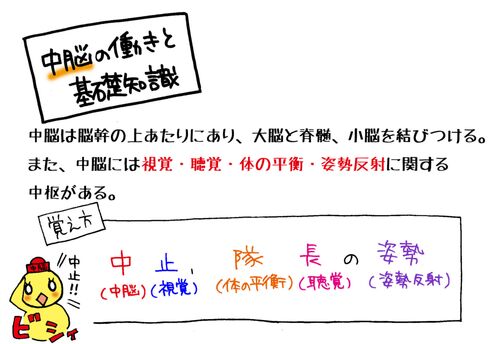 中脳の働きと
基礎知識
中脳は脳幹の上あたりにあり、大脳と脊髄、小脳を結びつける。
また、中脳には視覚・聴覚・体の平衡・姿勢反射に関する
中枢がある。
覚え方
中止、隊長の姿勢
(中脳)(視覚)(体の平衡)(聴覚)(姿勢反射)
中止!!
ビシィ